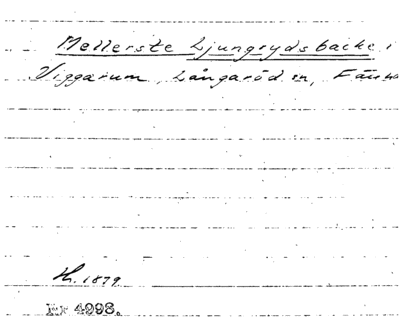 Mellerste Ljungrydsbacke i
Viggarum, Långaröd sn,
Hr. 1879
4998.